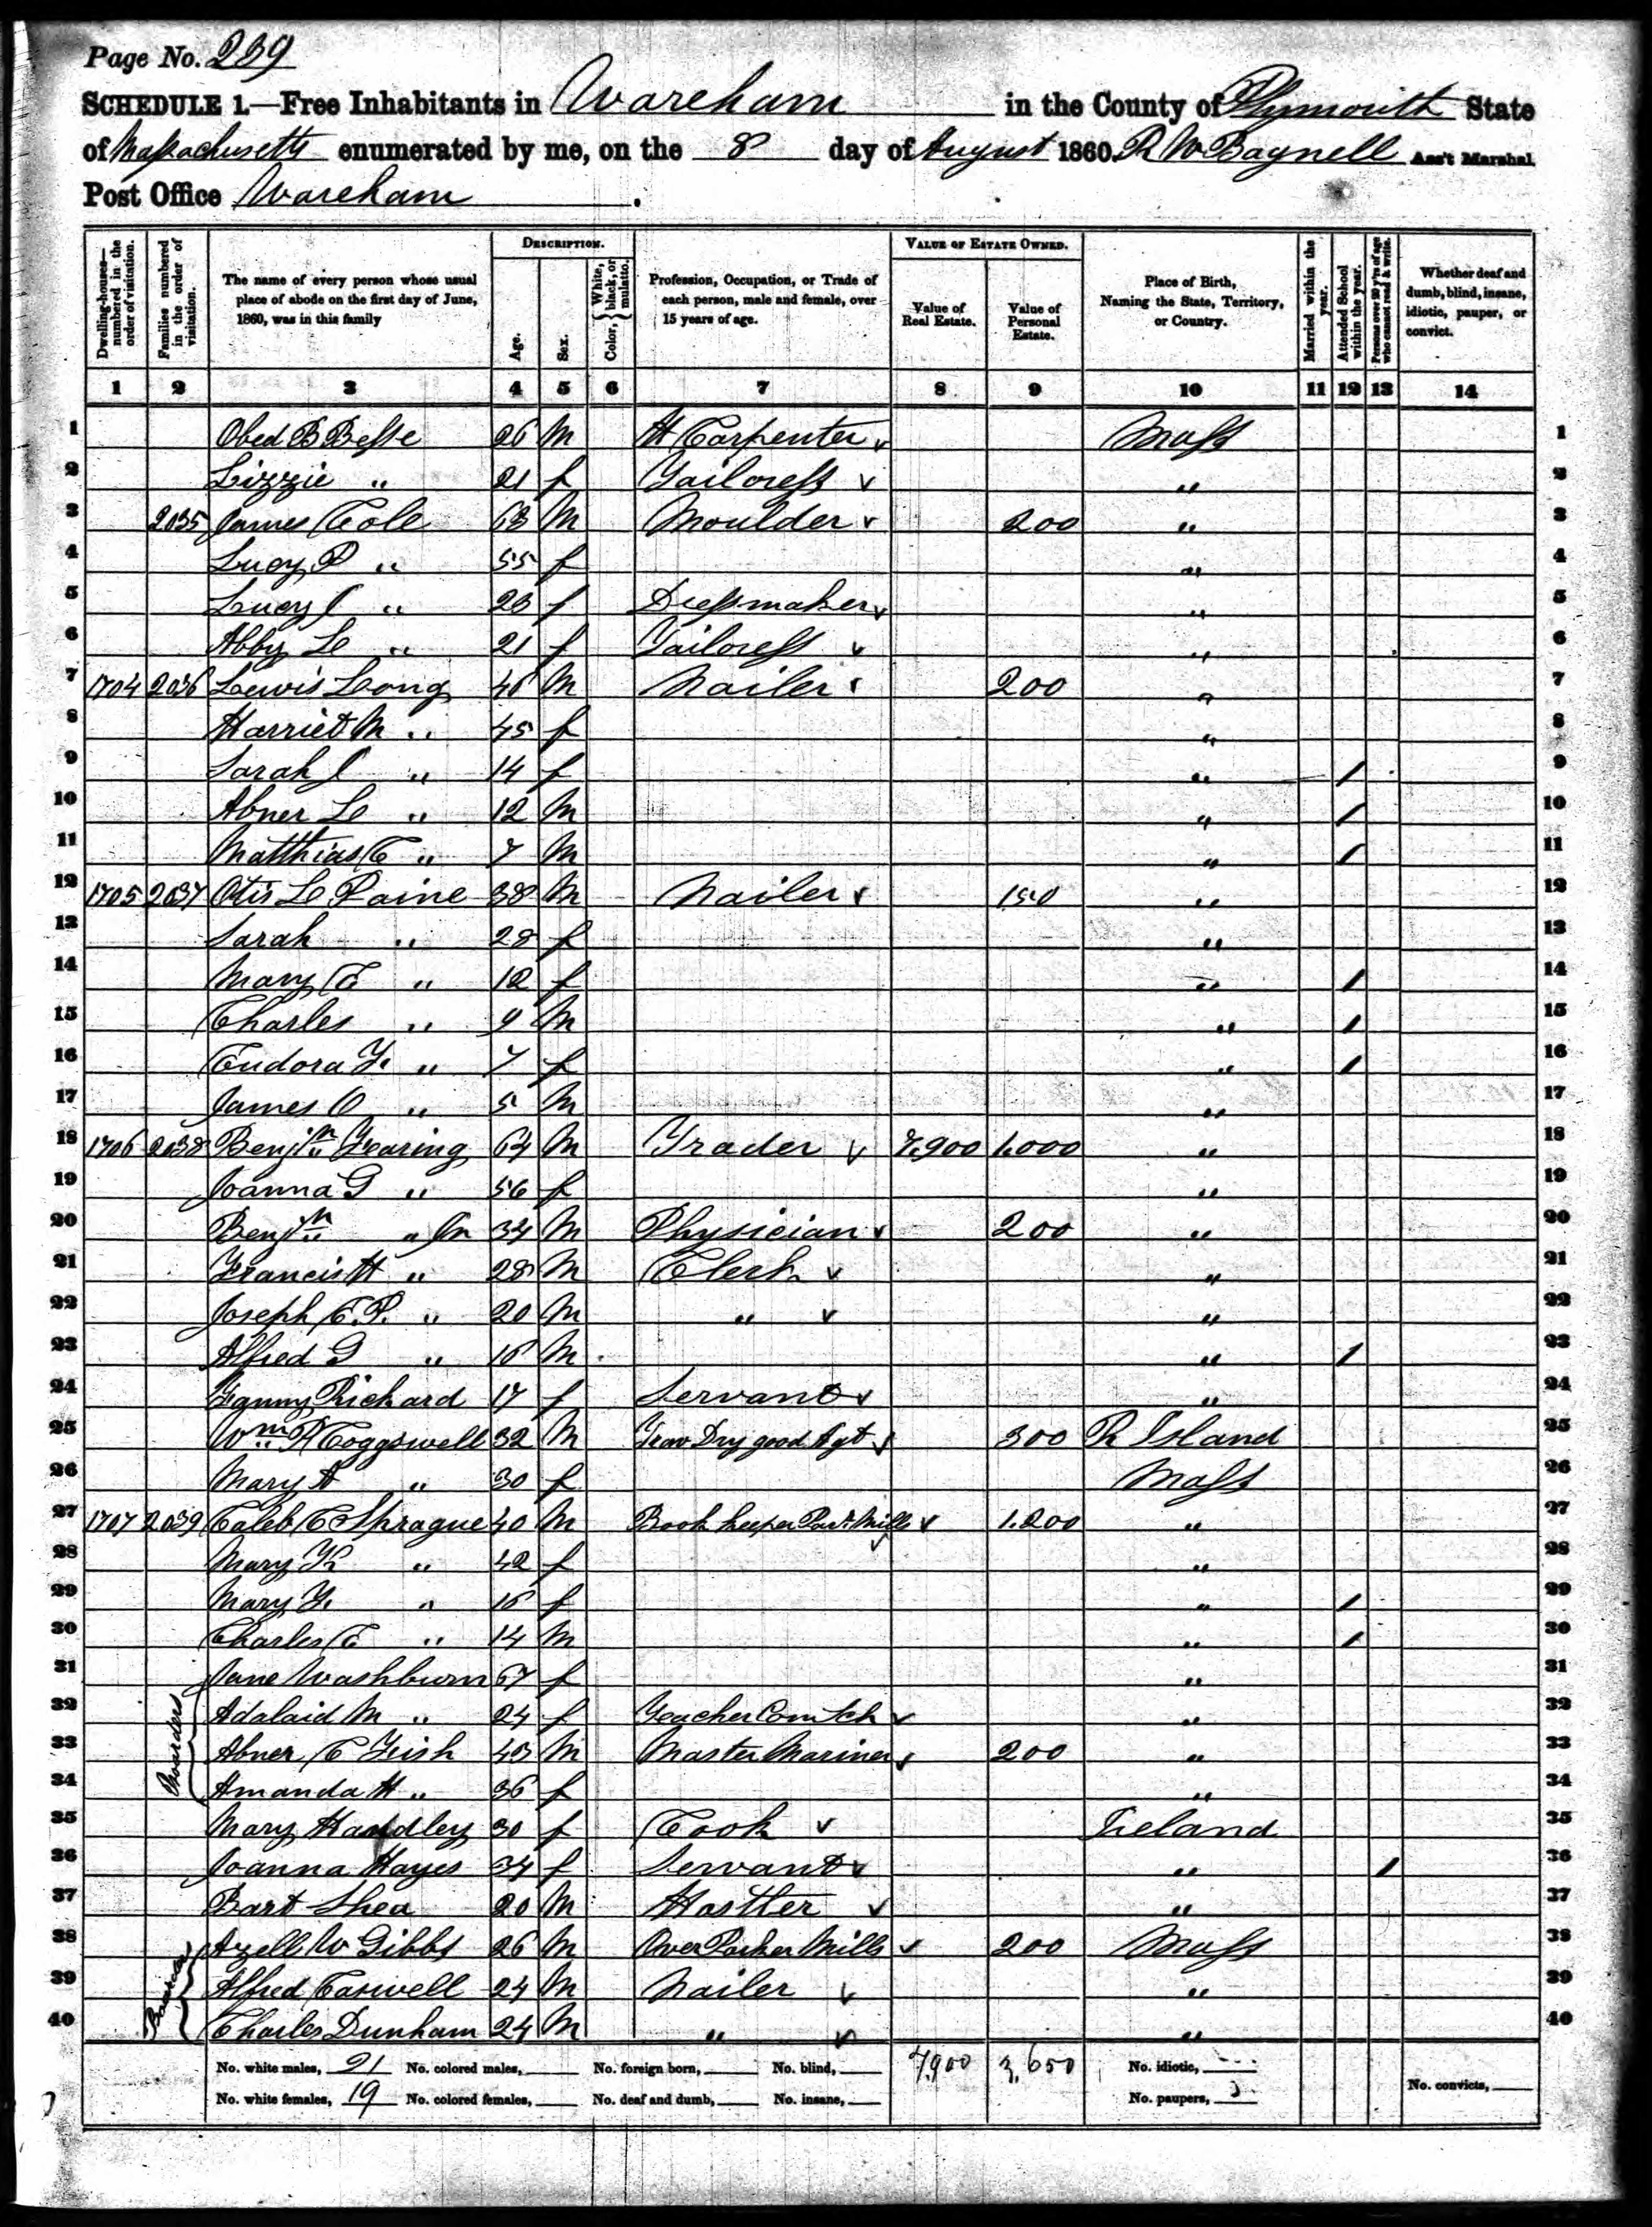 Page No. 239
SCHEDULE 1.—Free Inhabitants in Wareham in the County of Plymouth State
of Massachusetts enumerated by me, on the 8 day of August 1860. R W Bagnell Ass't Marshal.
Post Office Wareham.
Dwelling-houses—numbered in the order of visitation. Families numbered in the order of visitation. The name of every person whose usual place of abode on the first day of June, 1860, was in this family DESCRIPTION. Age. Sex. Color, { White, black, or mulatto. Profession, Occupation, or Trade of each person, male and female, over 15 years of age. VALUE OF ESTATE OWNED. Value of Real Estate. Value of Personal Estate. Place of Birth, Naming the State, Territory, or Country. Married within the year. Attended School within the year. Persons over 20 y'rs of age who cannot read & write. Whether deaf and dumb, blind, insane, idiotic, pauper, or convict.
1 2 3 4 5 6 7 8 9 10 11 12 13 14
1 Obed B Besse 26 M H Carpenter Mass 1
2 Lizzie " 21 f Tailoress " 2
3 2035 James Cole 63 M Moulder 200 " 3
4 Lucy P " 55 f " 4
5 Lucy J " 23 f Dressmaker " 5
6 Abby L " 21 f Tailoress " 6
7 1704 2036 Lewis Long 46 M Nailer 200 " 7
8 Harriet M " 45 f " 8
9 Sarah J " 14 f " / 9
10 Abner L " 12 M " / 10
11 Matthias C " 7 M " / 11
12 1705 2037 Otis L Paine 38 M Nailer 150 " 12
13 Sarah " 28 f " 13
14 Mary E " 12 f " / 14
15 Charles " 9 M " / 15
16 Eudora F " 7 f " / 16
17 James O " 5 M " 17
18 1706 2038 Benjn Fearing 64 M Trader 7.900 1.000 " 18
19 Joanna G " 56 f " 19
20 Benjn " Jn 34 M Physician 200 " 20
21 Francis H " 28 M Clerk " 21
22 Joseph C.P. " 20 M " " 22
23 Alfred G " 16 M " / 23
24 Fanny Rickard 17 f Servant " 24
25 Wm R Coggswell 32 M Trav Dry good Agt 300 R Island 25
26 Mary A " 30 f Mass 26
27 1707 2039 Caleb C Sprague 40 M Book keeper Park Mills 1.200 " 27
28 Mary K " 42 f " 28
29 Mary F " 16 f " / 29
30 Charles C " 14 M " / 30
31 Jane Washburn 67 f " 31
Boarders
32 Adalaid M " 24 f Teacher Com Sch " 32
33 Abner C Fish 43 M Master Mariner 200 " 33
34 Amanda H " 36 f " 34
35 Mary Handley 30 f Cook Ireland 35
36 Joanna Hayes 34 f Servant " / 36
37 Bart Shea 20 M Hostler " 37
38 Azell W Gibbs 26 M Over Parker Mills 200 Mass 38
39 Alfred Caswell 24 M Nailer " 39
40 Charles Dunham 24 M " " 40
No. white males, 21 No. colored males, No. foreign born, No. blind, 7,900 3,650 No. idiotic,
No. white females, 19 No. colored females, No. deaf and dumb, No. insane, No. paupers, No. convicts,